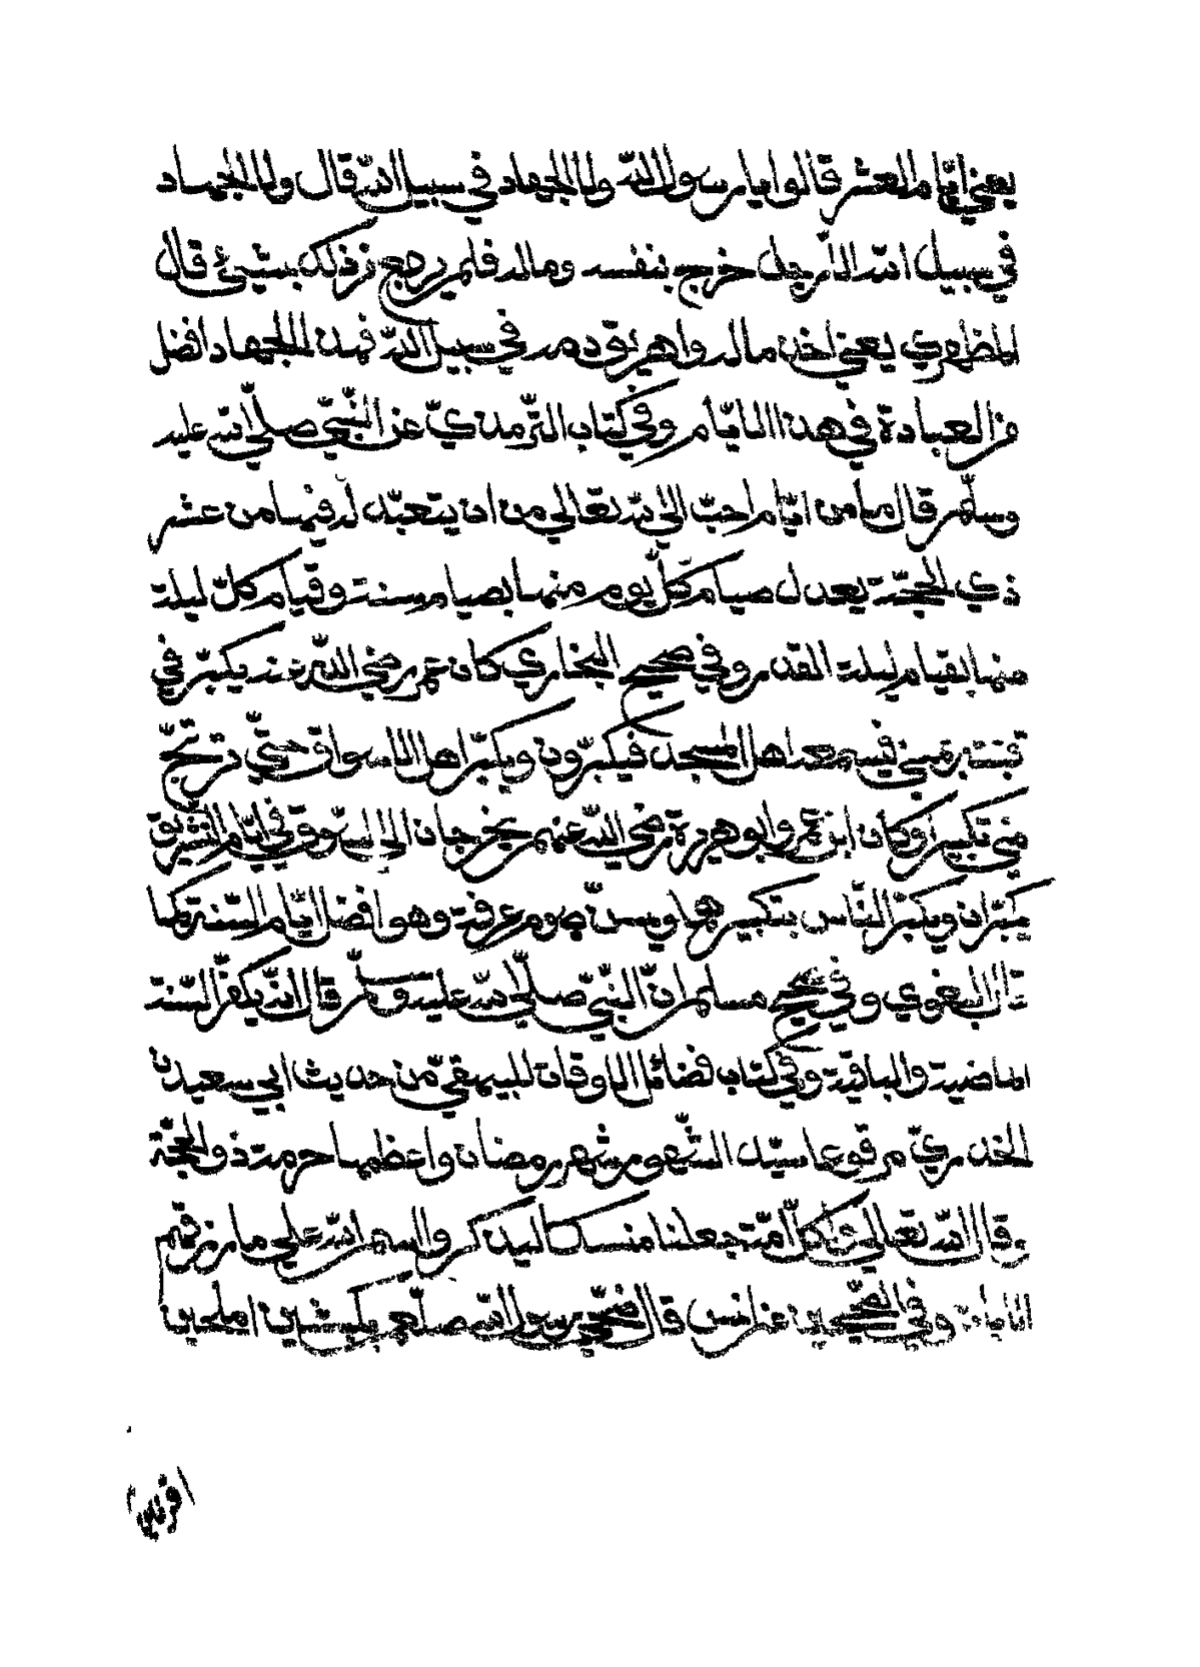 يعني ايّام العشر قالوا يا رسول اللّه ولا الجهاد في سبيل اللّه قال ولا الجهاد
في سبيل اللّه الّا رجل خرج بنفسه وماله فلم يرجع من ذلك بشيئ قال
المظهري يعني اخذ ماله واهريق دمه في سبيل اللّه فهذا الجهاد افضل
من العبادة في هذا الايّام وفي كتاب التّرمذيّ عن النّبيّ صلّي اللّه عليه
وسلّم قال ما من ايّام احبّ الي للّه تعالي من ان يتعبّد له فيها من عشر
ذي الحجّة يعدل صيام كلّ يوم منها بصيام سنة وقيام كلّ ليلة
منها بقيام ليلة القدر وفي صحيح البخاري كان عمر رضي اللّه عنه يكبّر في
قبّته بمني فيسمعه اهل المسجد فيكبّرون ويكبّر اهل الاسواق حتّي ترتجّ
مني تكبيرا وكان ابن عمر وابو هريرة رضي اللّه عنهم يخرجان الي السّوق في ايّام التّشريق
يكبّران ويكبّر النّاس بتكبيرهما ويسنّ صوم عرفة وهو افضل ايّام السّنة كما
قال البغوي وفي صحيح مسلم انّ النّبيّ صلّي اللّه عليه وسلّم قال انّه يكفّر السّنة
الماضية والباقية وفي كتاب فضائل الاوقات للبيهقيّ من حديث ابي سعيدن
الخدريّ مرفوعا سيّد الشّهور شهر رمضان واعظمها حرمة ذو الحجّة
وقال اللّه تعالي ولكلّ امّة جعلنا منسكا ليذكروا اسم اللّه علي ما رزقهم
الاياة وفي الصّحيحين عن انس قال ضحّي رسول اللّه صلّعم بكبشين املحين
اقرنين